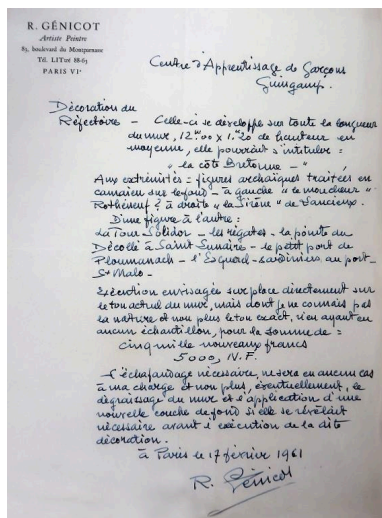 R. GÉNICOT
Artiste Peintre
83, boulevard du Montparnasse
Tél. LITtré 88-63
PARIS VIe
Centre d'Apprentissage de Garçons
Guingamp.
Décoration du
Réfectoire - Celle-ci se développe sur toute la longueur
du mur, 12m00 x 1m20 de hauteur en
moyenne, elle pourrait s'intituler :
"la côte Bretonne - "
Aux extrémités = figures archaïques traitées en
camaïeu sur le fond - à gauche "le moucheur"
Rothéneuf & à droite "la Sirène" de Lancieux.
D'une figure à l'autre :
La Tour Solidor - les régates - la pointe du
Décollé à Saint Lunaire - le petit port de
Ploumanach - l'Esqueil - sardiniers au port -
St Malo -
Exécution envisagée sur place directement sur
le ton actuel du mur, mais dont je ne connais pas
la nature et non plus le ton exact, n'en ayant en
aucun échantillon, pour la somme de :
cinq mille nouveaux francs
5000, N.F.
L'échafaudage nécessaire, ne sera en aucun cas
à ma charge et non plus, éventuellement, le
dégraissage du mur et l'application d'une
nouvelle couche de fond si elle se révélait
nécessaire avant l'exécution de la dite
décoration.
à Paris le 17 février 1961
R. Génicot